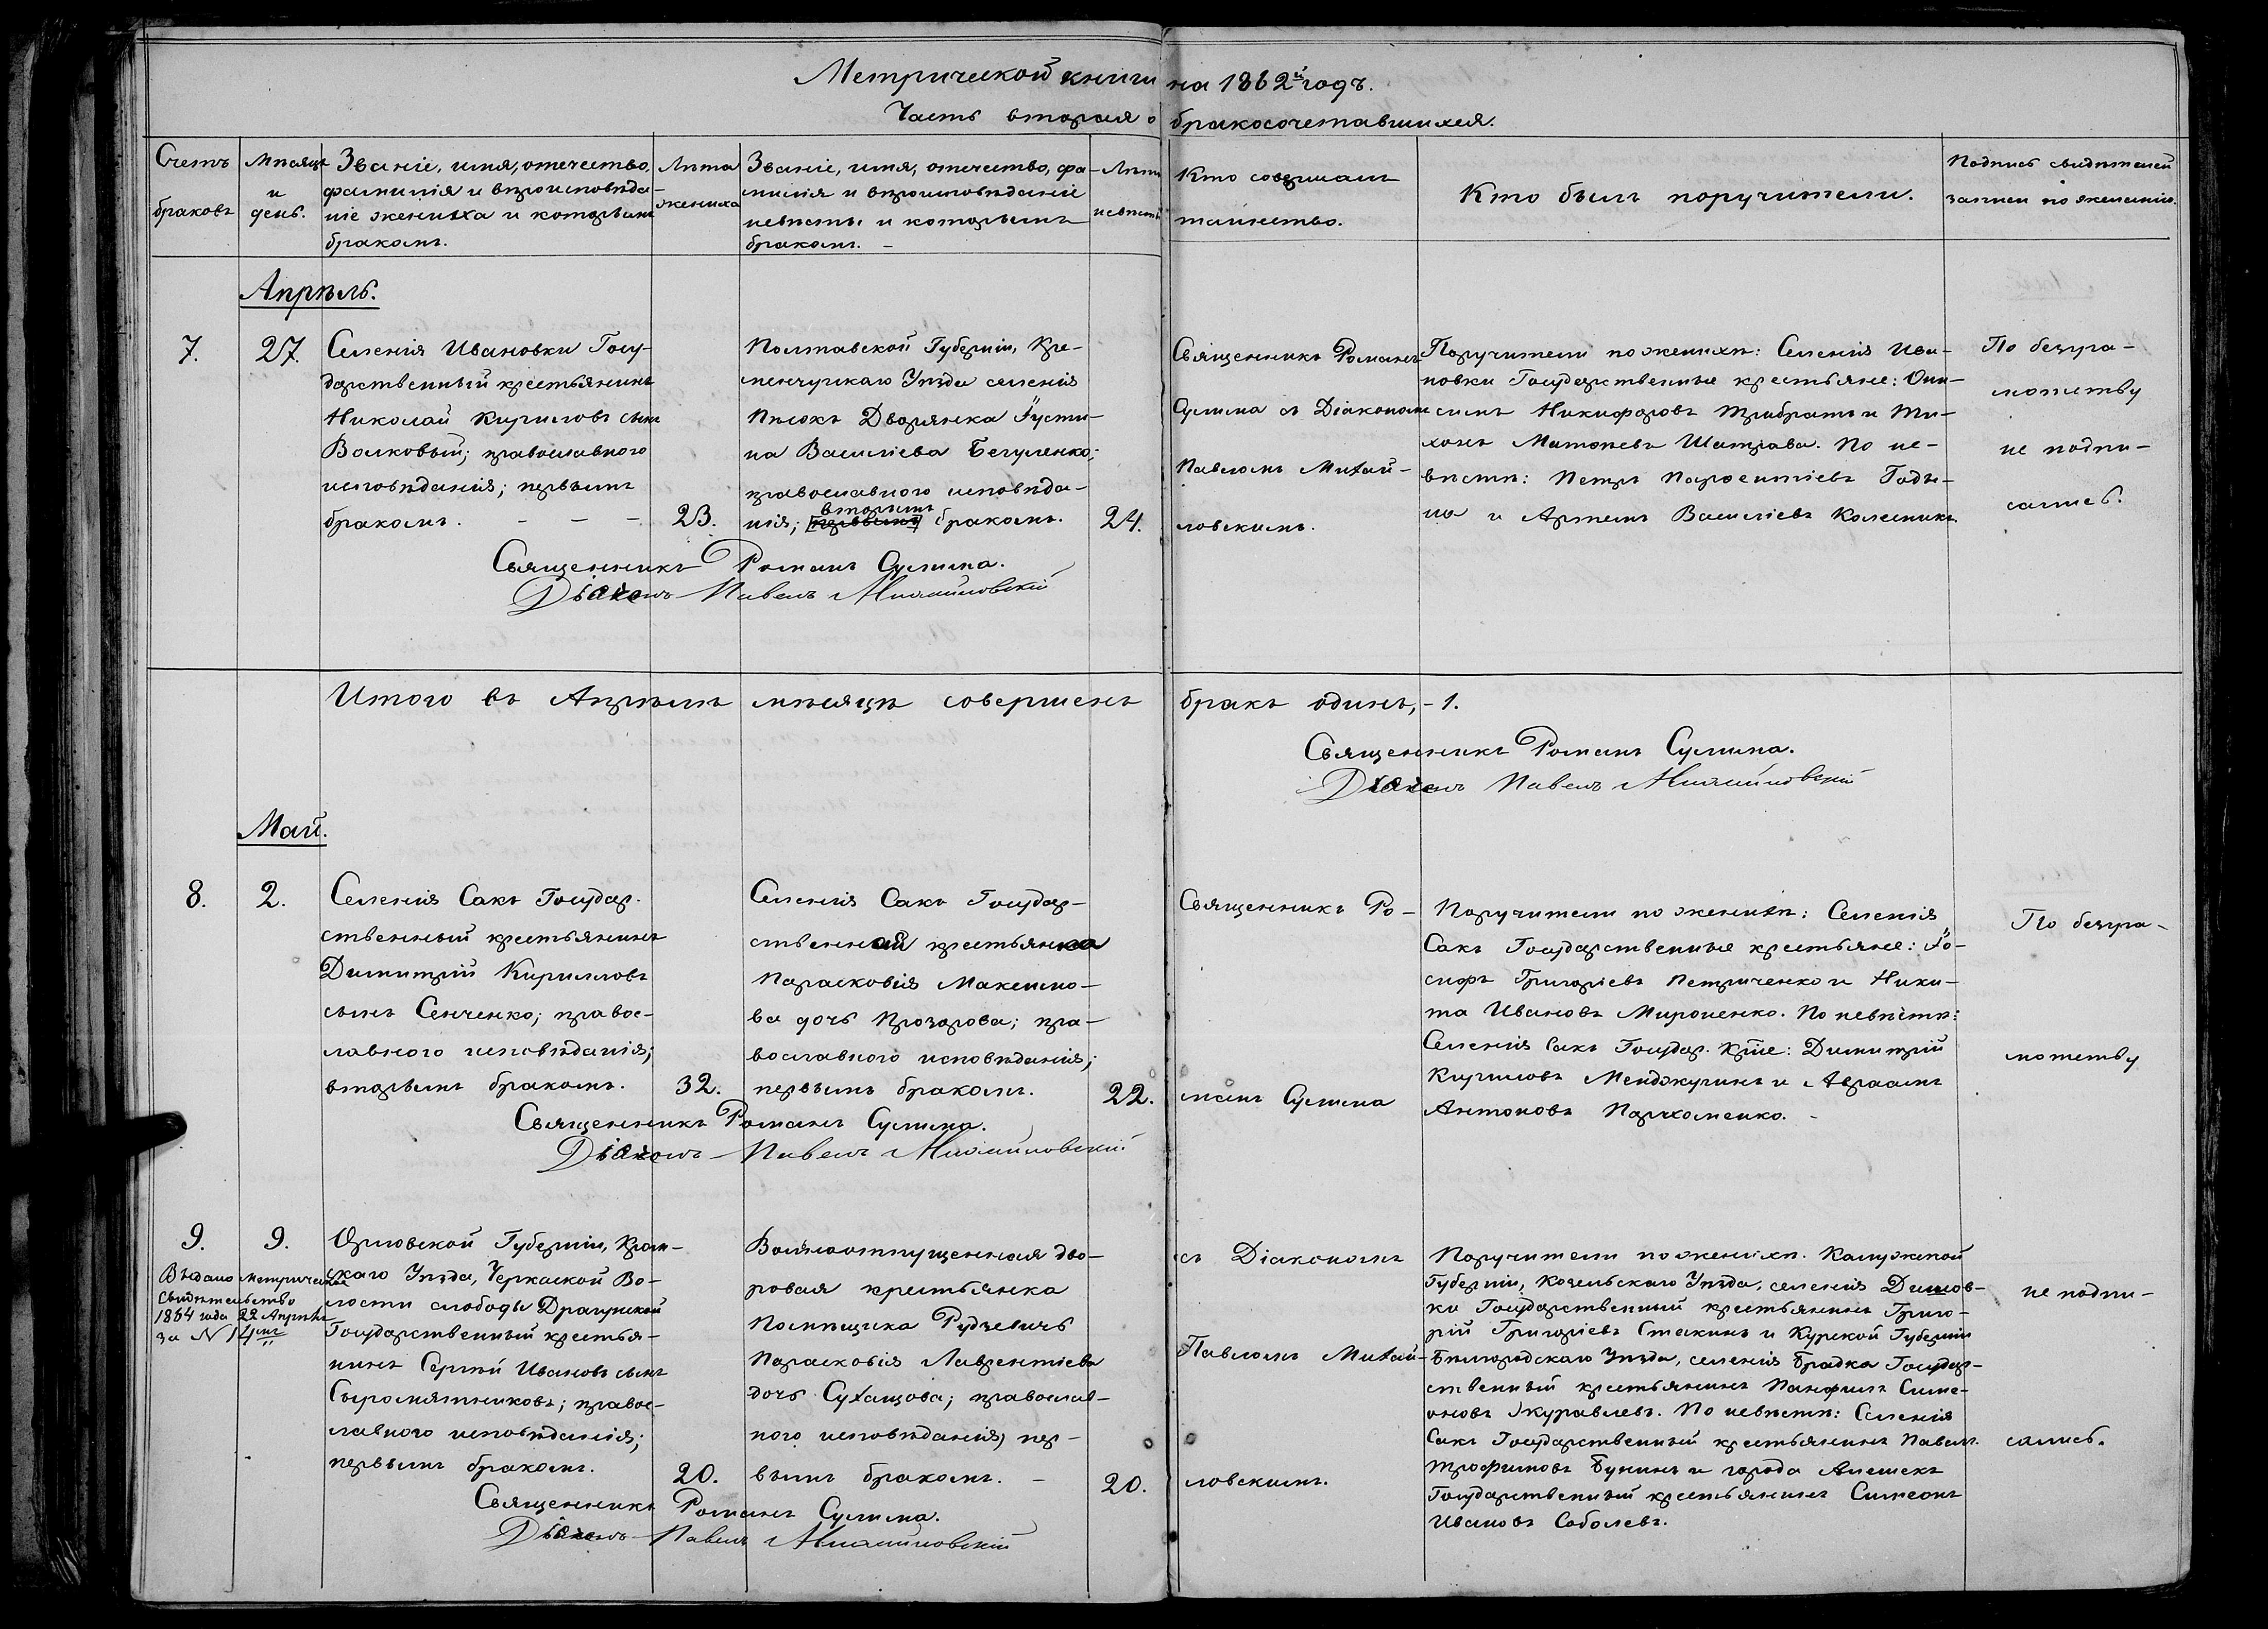 Метрической книги на 1862й годъ.
Часть вторая о бракосочетавшихся.
Счетъ
браковъ
Мѣсяцъ
и
день.
Званіе, имя, отечество,
фамилія и вѣроисповѣда-
ніе жениха и которымъ
бракомъ.
Лѣта
жениха
Званіе, имя, отечество, фа-
милія и вѣроисповѣданіе
невѣсты и которымъ
бракомъ. -
Лѣта
невѣсты
Кто совершалъ
таинство.
Кто былъ поручители.
Подпись свидѣтелей
записи по желанію.
Апрѣль.
7.
27.
Селенія Ивановки Госу-
дарственный крестьянинъ
Николай Кириловъ сынъ
Волковый; православного
исповѣданія; первымъ
бракомъ. - - -
23.
Полтавской Губерніи, Кре-
менчугскаго Уѣзда селенія
Пѣсокъ Дворянка Іусти-
на Василіева Бегуленко;
православного исповѣда-
вторымъ
нія; первымъ бракомъ.
24.
Священникъ Романъ
Сулима съ Діакономъ
Павломъ Михай-
ловскимъ.
Поручители по женихѣ: Селенія Ива-
новки Государственные крестьяне: Они-
симъ Никифоровъ Трибратъ и Ти-
хонъ Матѳѣевъ Шатрава. По не-
вѣстѣ: Петръ Пароентіевъ Годы-
на и Артемъ Василіевъ Колесникъ
По безгра-
мотству
не подпи-
сались.
Священникъ Романъ Сулима.
Діаконъ Павелъ Михайловскій
Итого въ Апрѣлѣ мѣсяцѣ совершенъ бракъ одинъ, - 1.
Священникъ Романъ Сулима.
Діаконъ Павелъ Михайловскій
Май.
8.
2.
Селенія Сакъ Государ-
ственный крестьянинъ
Димитрій Кирилловъ
сынъ Сенченко; правос-
лавного исповѣданія;
вторымъ бракомъ.
32.
Селенія Сакъ Государ-
ственная крестьянка
Парасковія Максимо-
ва дочь Прозорова; пра-
вославного исповѣданія;
первымъ бракомъ.
22.
Священникъ Ро-
манъ Сулима
Поручители по женихѣ: Селенія
Сакъ Государственные крестьяне: Іо-
сифъ Григоріевъ Петриченко и Ники-
та Ивановъ Мироненко. По невѣстѣ:
Селенія Сакъ Государ. Кр͠не: Димитрій
Кириловъ Менджулинъ и Авраамъ
Антоновъ Пархоменко. -
По безгра-
мотству
Священникъ Романъ Сулима.
Діаконъ Павелъ Михайловскій.
9.
9.
Выдано Метрическое
свидѣтельство
1864 года 22 Апрѣля
за № 14мъ
Орловской Губерніи, Кром-
скаго Уѣзда, Черкаской Во-
лости слободы Драгунской
Государственный крестья-
нинъ Сергѣй Ивановъ сынъ
Сыромятниковъ; правос-
лавного исповѣданія;
первымъ бракомъ.
20.
Вольноотпущенная дво-
ровая крестьянка
Помѣщика Рудзевичъ
Парасковія Лаврентіева
дочь Сухацова; православ-
ного исповѣданія; пер-
вымъ бракомъ. -
20.
съ Діакономъ
Павломъ Михай-
ловскимъ.
Поручители по женихѣ. Калужской
Губерніи, Козельскаго Уѣзда, селенія Димов-
ки Государственный крестьянинъ Григо-
рій Григоріевъ Стекинъ и Курской Губерніи
Бѣлгородскаго Уѣзда, селенія Брадка Государ-
ственный крестьянинъ Панфилъ Симе-
оновъ Журавлевъ. По невѣстѣ: Селенія
Сакъ Государственный крестьянинъ Павелъ
Трофимовъ Бунинъ и города Алешекъ
Государственный крестьянинъ Симеонъ
Ивановъ Соболевъ.
не подпи-
сались.
Священникъ Романъ Сулима.
Діаконъ Павелъ Михайловскій